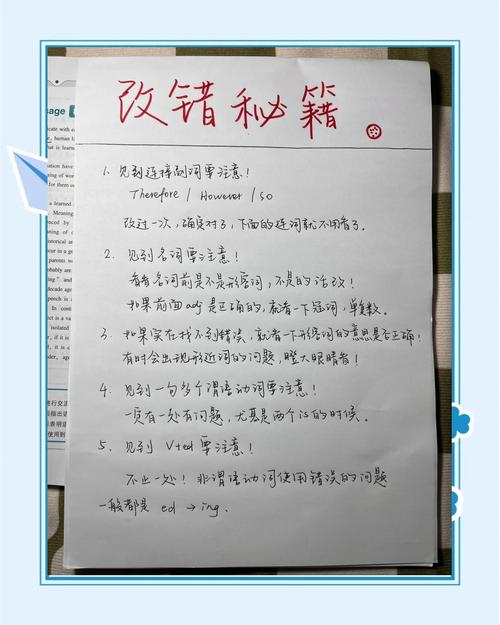 改错秘籍
1. 见到连接副词要注意!
Therefore / However / so
改过一次,确定对了,下面的连词就不用看了。
2. 见到名词要注意!
看看名词前是不是形容词,不是的话改!
如果前面adj是正确的,就看一下冠词,单复数。
3. 如果实在找不到错误,就看一下形容词的意思是否正确!
有时会出现形近词的问题,瞪大眼睛看!
4. 见到一句多个谓语动词要注意!
一定有一处有问题,尤其是两个is的时候。
5. 见到 V+ed 要注意!
不止一处!非谓语动词使用错误的问题
一般都是 ed → ing.